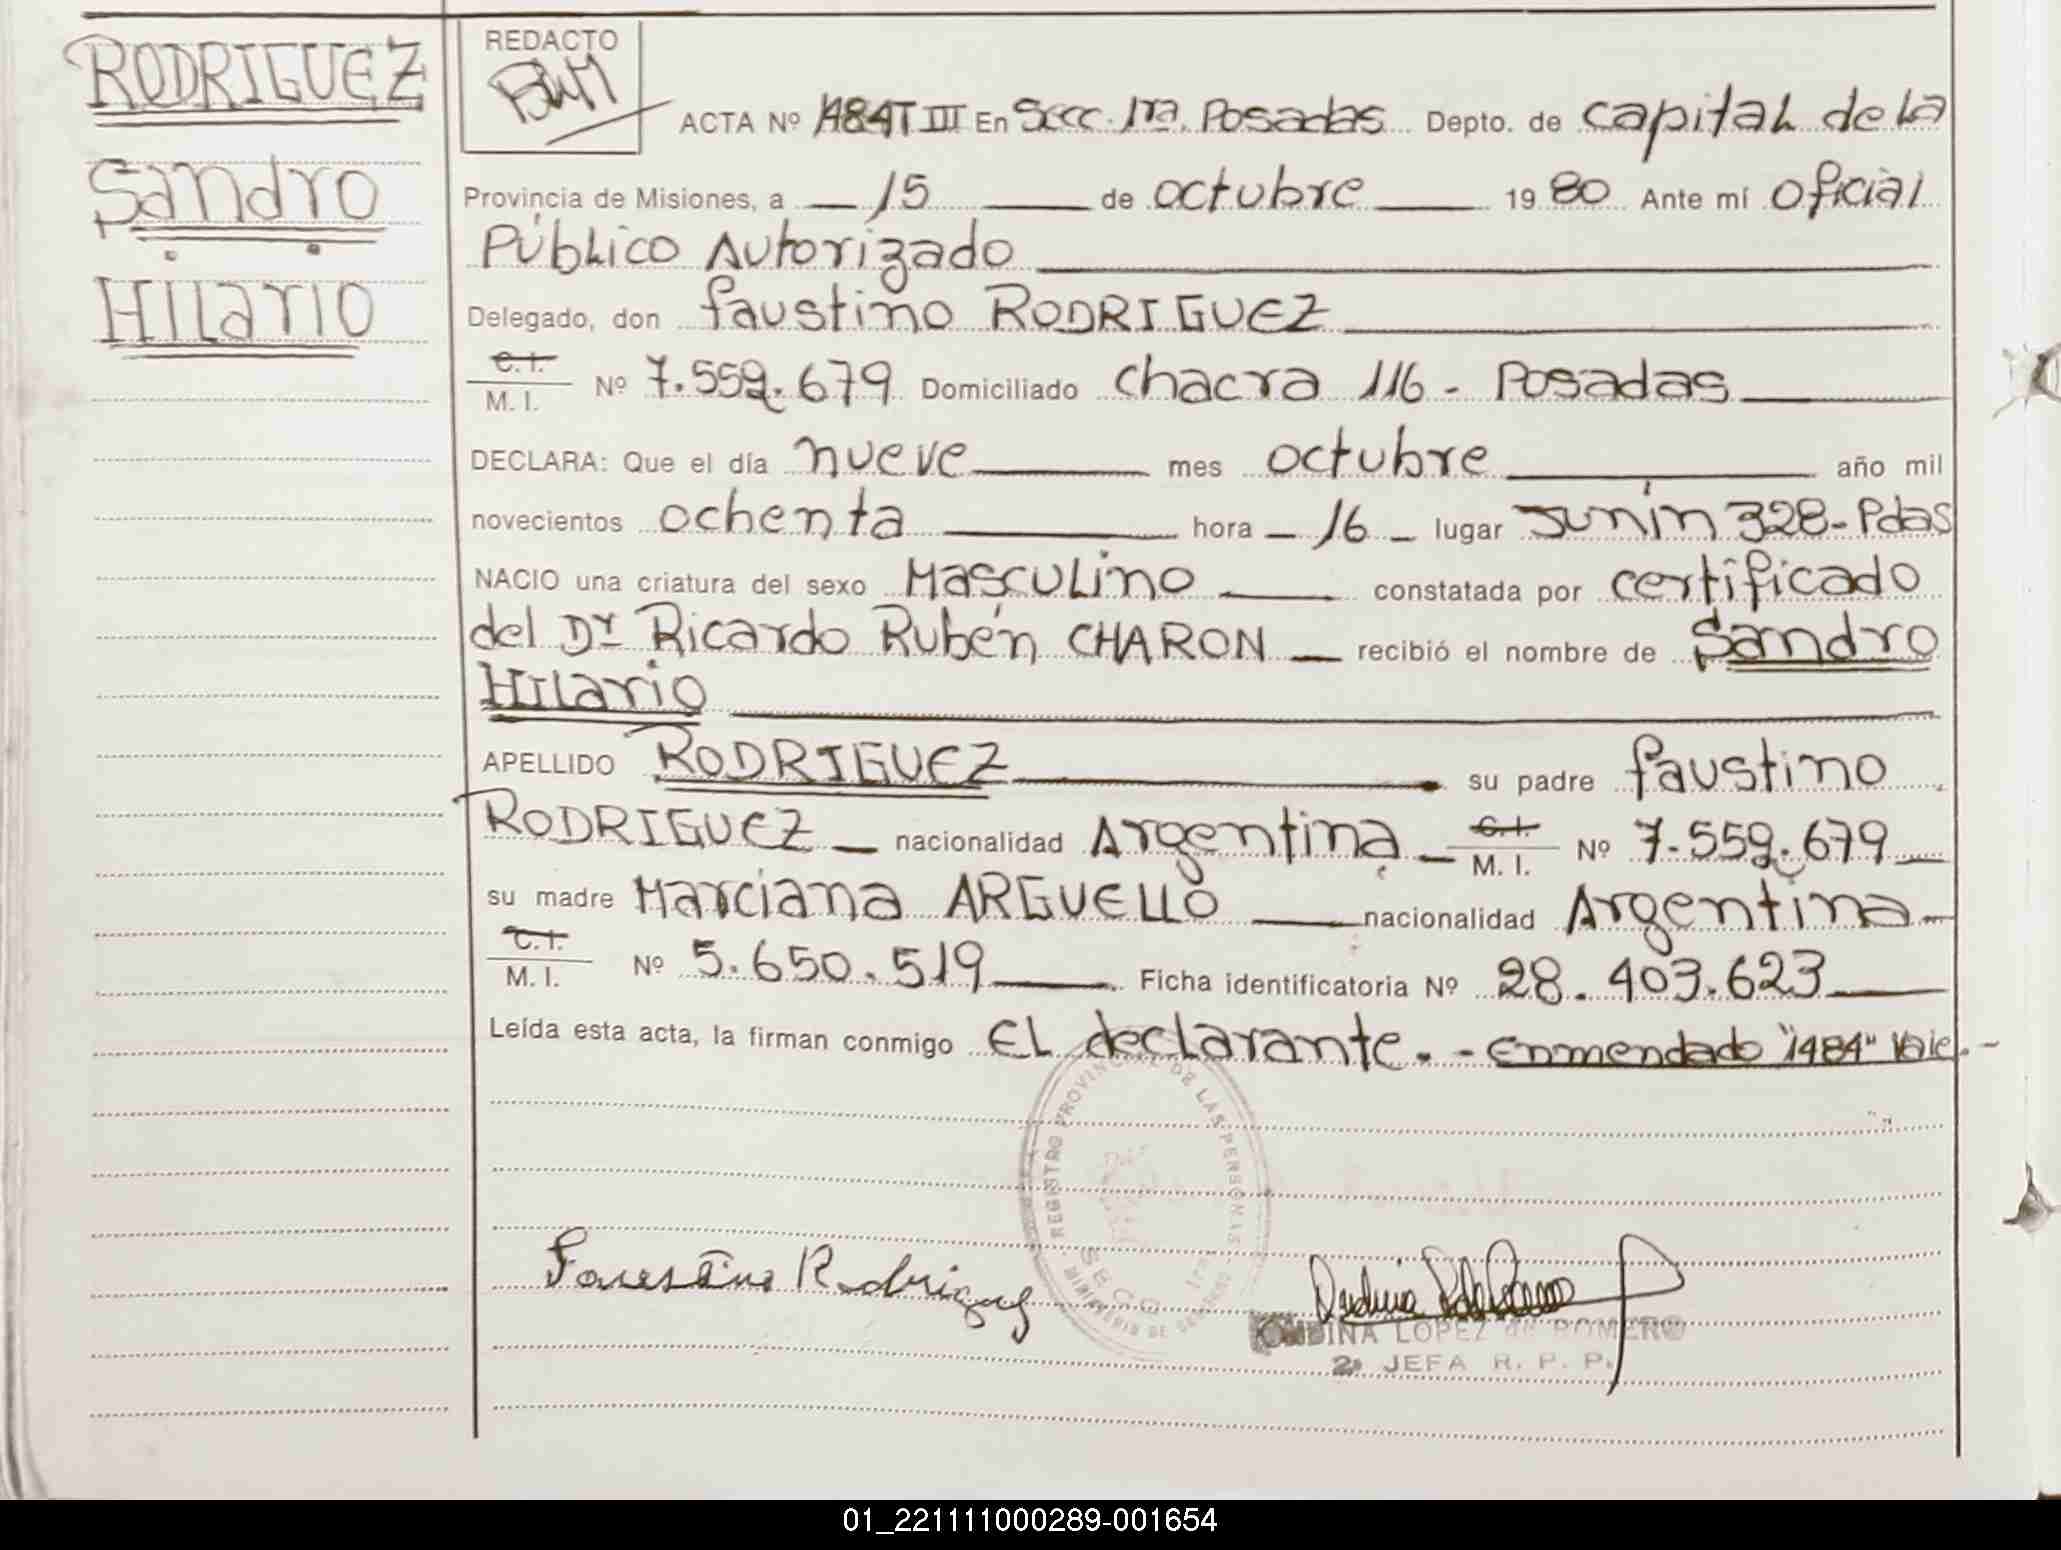 RODRIGUEZ
Sandro
Hilario
REDACTO
ACTA Nº 1484 T III En Secc. 1ra. Posadas Depto. de Capital de la
Provincia de Misiones, a 15 de octubre 1980 Ante mí Oficial
Público Autorizado
Delegado, don faustino RODRIGUEZ
C.I. / M. I. Nº 7.559.679 Domiciliado Chacra 116 - Posadas
DECLARA: Que el día nueve mes octubre año mil
novecientos ochenta hora 16 lugar Junín 328 - Pdas
NACIO una criatura del sexo Masculino constatada por certificado
del Dr Ricardo Rubén CHARON recibió el nombre de Sandro
Hilario
APELLIDO RODRIGUEZ su padre faustino
RODRIGUEZ nacionalidad Argentina C.I. / M. I. Nº 7.559.679
su madre Marciana ARGUELLO nacionalidad Argentina
C.I. / M. I. Nº 5.650.519 Ficha identificatoria Nº 28.403.623
Leída esta acta, la firman conmigo El declarante. - Enmendado "1484" Vale. -
REGISTRO PROVINCIAL DE LAS PERSONAS
SECC 1ra
MINISTERIO DE GOBIERNO
Faustino Rodriguez
LOPEZ de ROMERO
2ª JEFA R. P. P.
01_221111000289-001654